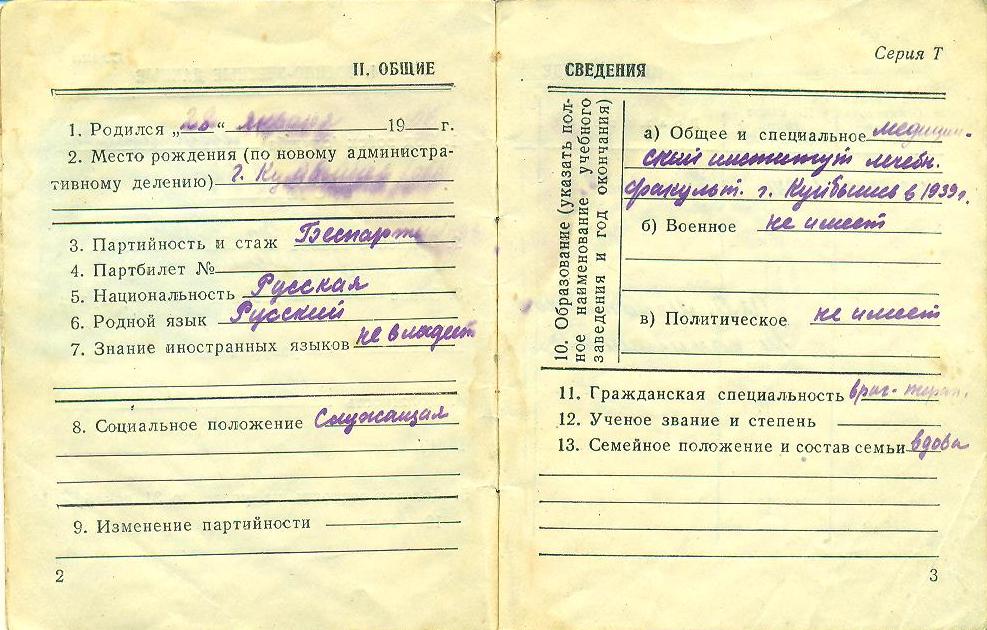 II. ОБЩИЕ
1. Родился „20“ января 19 г.
2. Место рождения (по новому администра-
тивному делению) г.
3. Партийность и стаж Беспарт
4. Партбилет №
5. Национальность Русская
6. Родной язык Русский
7. Знание иностранных языков не владеет
8. Социальное положение Служащая
9. Изменение партийности
2
Серия Т
СВЕДЕНИЯ
10. Образование (указать пол-
ное наименование учебного
заведения и год окончания)
а) Общее и специальное медицин-
ский институт лечебн.
факульт. г. Куйбышев в 1939 г.
б) Военное не имеет
в) Политическое не имеет
11. Гражданская специальность врач-терап.
12. Ученое звание и степень
13. Семейное положение и состав семьи вдова
3